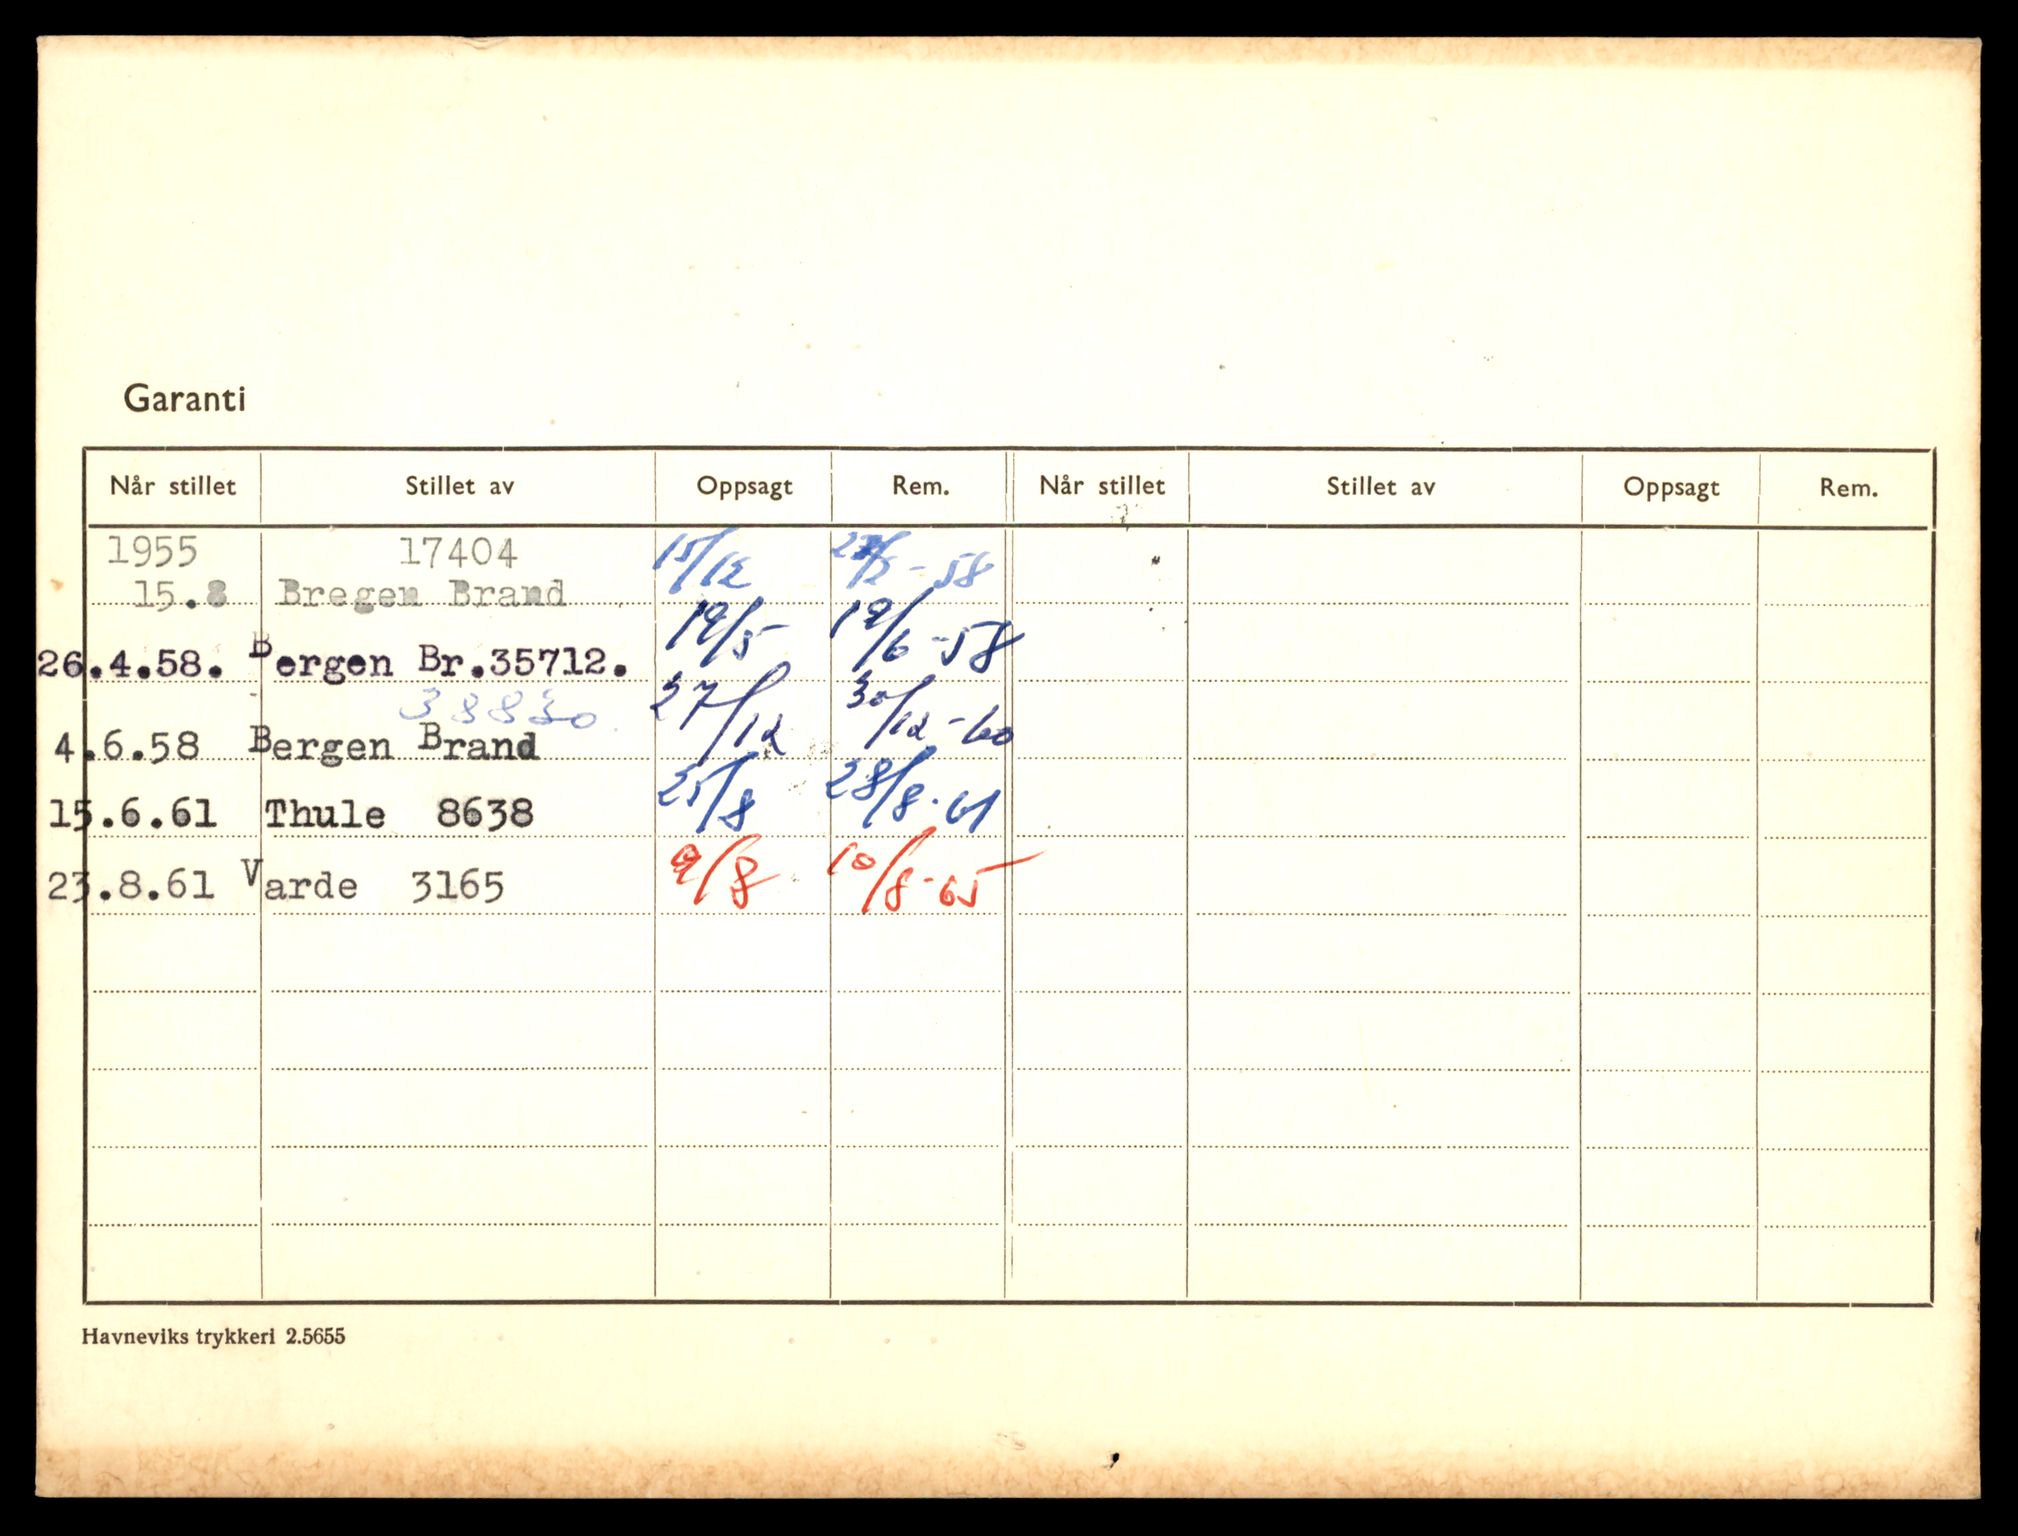 Garanti
Når stillet Stillet av Oppsagt Rem. Når stillet Stillet av Oppsagt Rem.
1955 17404 15/12 -58
15.8 Bregen Brand
19/5 19/6-58
26.4.58. Bergen Br.35712.
38830 27/12 30/12-60
4.6.58 Bergen Brand
15.6.61 Thule 8638 25/8 28/8.61
23.8.61 Varde 3165 9/8 10/8-65
Havneviks trykkeri 2.5655